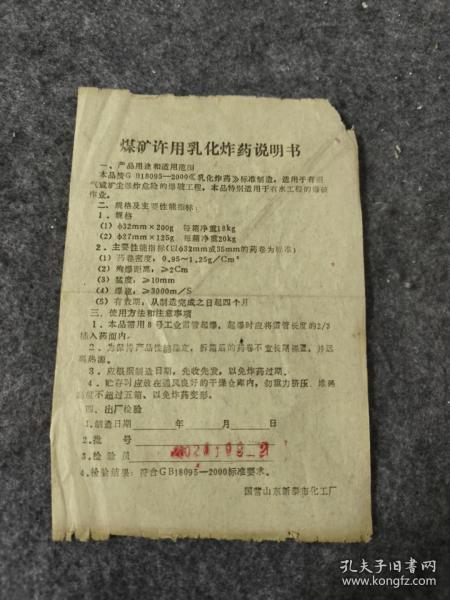 煤矿许用乳化炸药说明书
一、产品用途和适用范围
本品按GB18095—2000《乳化炸药》标准制造，适用于有瓦
气或矿尘爆炸危险的爆破工程。本品特别适用于有水工程的爆破
作业）
二、规格及主要性能指标：
1．规格
（1）φ32mm×200g 每箱净重18kg
（2）φ27mm×125g 每箱净重20kg
2．主要性能指标（以φ32mm或35mm的药卷为标准）
（1）药卷密度，0.95～1.25g/Cm³
（2）殉爆距离，≥2Cm
（3）猛度，≥10mm
（4）爆速，≥3000m/S
（5）有效期，从制造完成之日起四个月
三、使用方法和注意事项
1．本品需用8号工业雷管起爆，起爆时应将雷管长度的2/3
插入药面内。
2．为保持产品性能稳定，拆箱后的药卷不宜长期搁置，并远
离热源。
3．应根据制造日期，先收先发，以免炸药过期。
4．贮存时应放在通风良好的干燥仓库内，勿重力挤压，堆码
高度不超过五箱，以免炸药变形。
四、出厂检验
1.制造日期 年 月 日
2.批 号
3.检验员
4.检验结果：符合GB18095—2000标准要求。
国营山东新泰市化工厂
孔夫子旧书网
www.kongfz.com